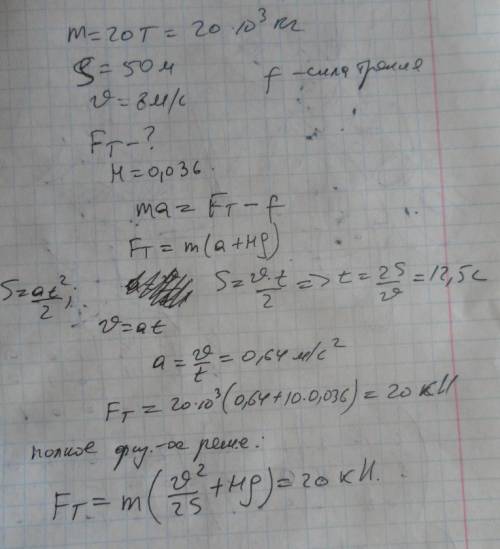 m = 20 т = 20·10³ кг
S = 50 м
f - сила трения
v = 8 м/с
F_T - ?
μ = 0,036
ma = F_T - f
F_T = m(a + μg)
S = at²/2; S = v·t/2 => t = 2S/v = 12,5 с
v = at
a = v/t = 0,64 м/с²
F_T = 20·10³(0,64 + 10·0,036) = 20 кН
полное физ.-ое реше.:
F_T = m(v²/2S + μg) = 20 кН.